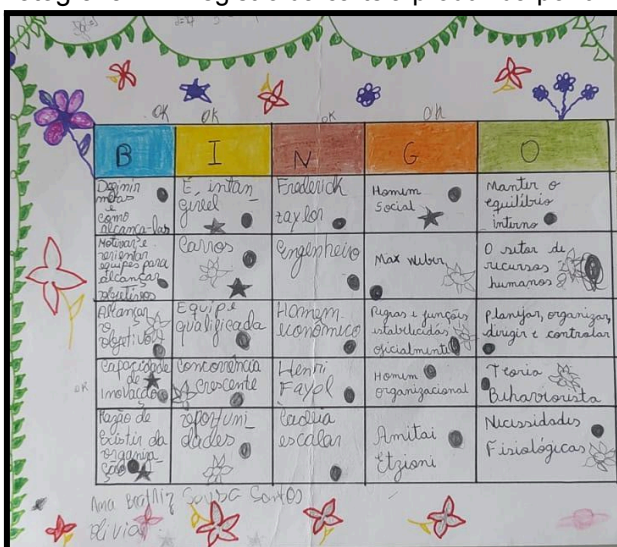 ok ok ok oh
B I N G O
Definir
metas
e
como
alcança-las
É intan
gível
Frederick
taylor
Homem
social
Manter o
equilíbrio
interno
Motivar e
reorientar
equipes para
alcançar
objetivos
Carros
Engenheiro
Max Weber
O setor de
recursos
humanos
Alcançar
o
objetivo
Equipe
qualificada
Homem
econômico
Regras e funções
estabelecidas
oficialmente
planejar, organizar,
dirigir e controlar
ok
Capacidade
de
inovação
Concorrência
crescente
Henri
Fayol
Homem
organizacional
Teoria
Behaviorista
Razão de
Existir da
organiza
ção
oportuni
dades
Cadeia
escalar
Amitai
Etzioni
Necessidades
Fisiológicas
Ana Beatriz Sousa Santos
Olivia